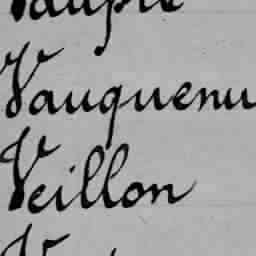 Vauquenu
Veillon